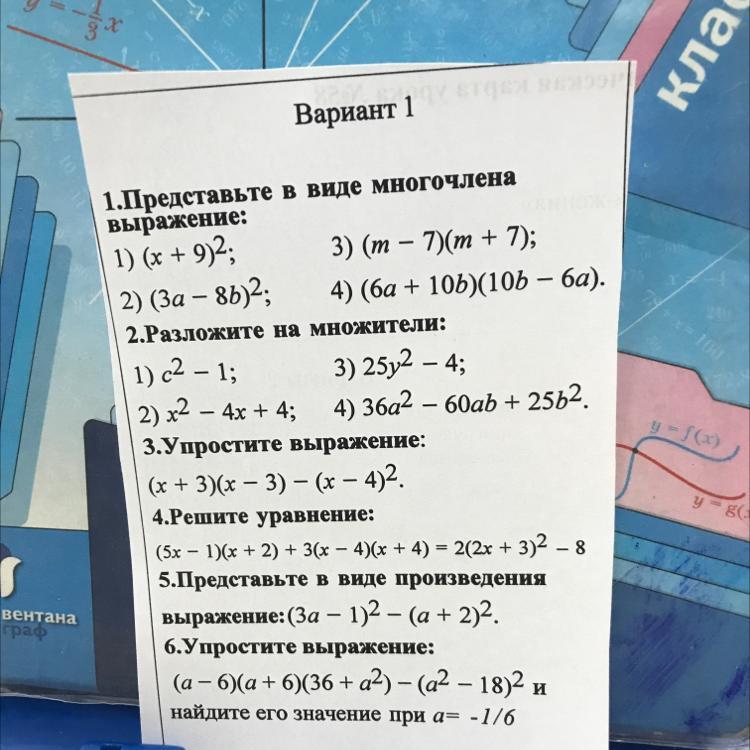 y = -1/3 x
клас
Вариант 1
1.Представьте в виде многочлена
выражение:
1) (x + 9)²; 3) (m − 7)(m + 7);
2) (3a − 8b)²; 4) (6a + 10b)(10b − 6a).
2.Разложите на множители:
1) c² − 1; 3) 25y² − 4;
2) x² − 4x + 4; 4) 36a² − 60ab + 25b².
3.Упростите выражение:
(x + 3)(x − 3) − (x − 4)².
4.Решите уравнение:
(5x − 1)(x + 2) + 3(x − 4)(x + 4) = 2(2x + 3)² − 8
5.Представьте в виде произведения
выражение: (3a − 1)² − (a + 2)².
6.Упростите выражение:
(a − 6)(a + 6)(36 + a²) − (a² − 18)² и
найдите его значение при a= -1/6
y = f(x)
y = g(x
вентана
граф